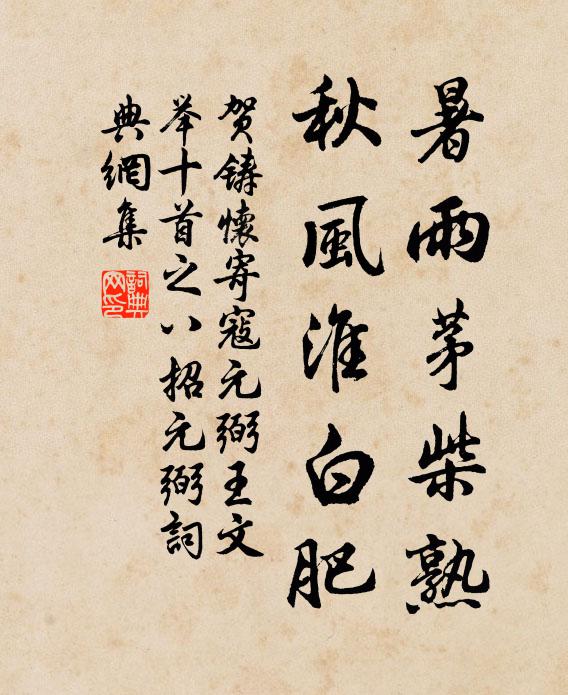 暑雨茅柴熟
秋風淮白肥
賀鑄懷寄寇元弼王文
举十首之八招元弼詞
典網集
詞典网印